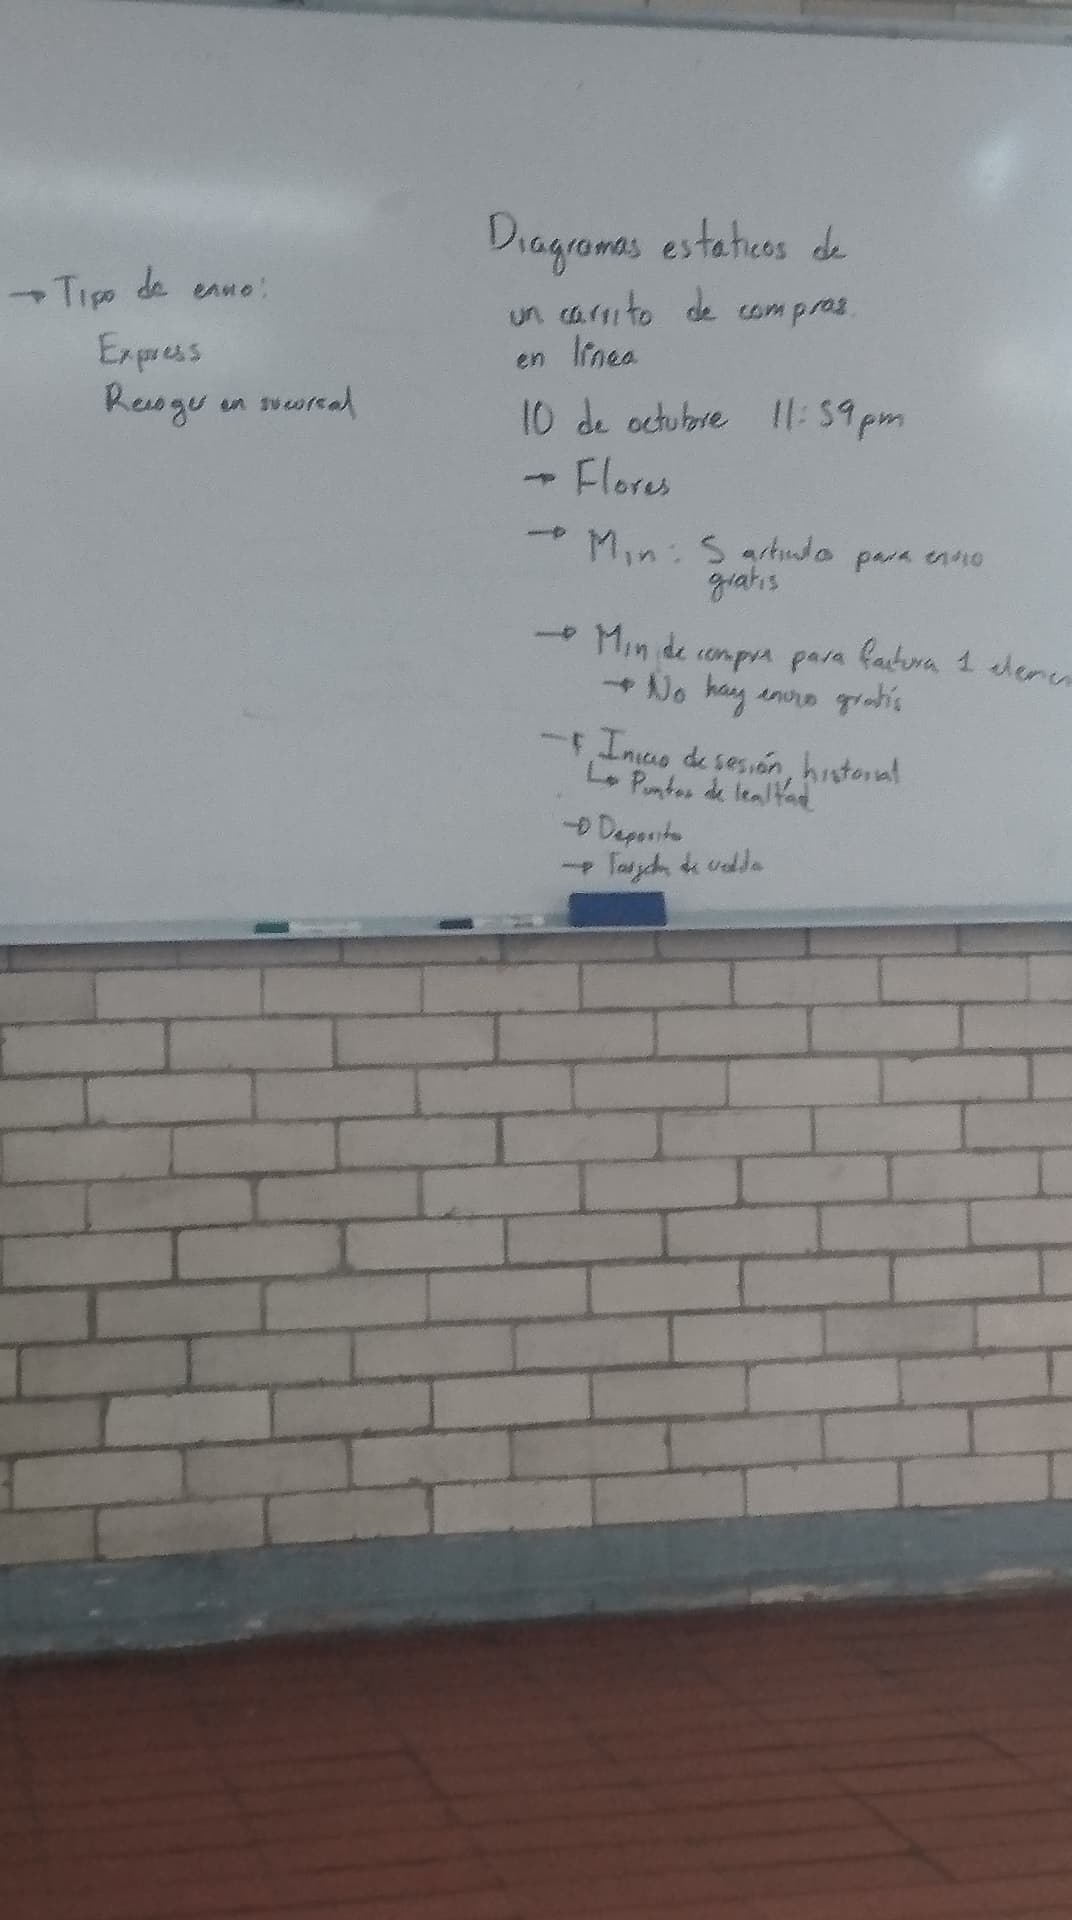 → Tipo de envio:
Express
Recoger en sucursal
Diagramas estaticos de
un carrito de compras.
en línea
10 de octubre 11:59pm
→ Flores
→ Min: 5 articulos para envio
gratis
→ Min de compra para factura 1 elemen
→ No hay envio gratis
→ Inicio de sesión, historial
↳ Puntos de lealtad
→ Deposito
→ Tarjeta de credito